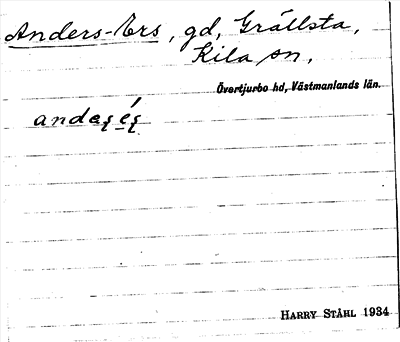 Anders-Ers, gd, Grällsta,
Kila sn.
Övertjurbo hd, Västmanlands län.
HARRY STÅHL 1934